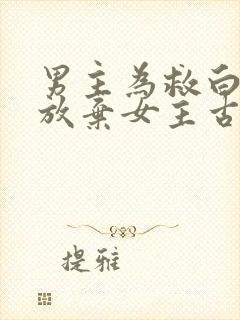 男主為救白
放棄女主古
提雅